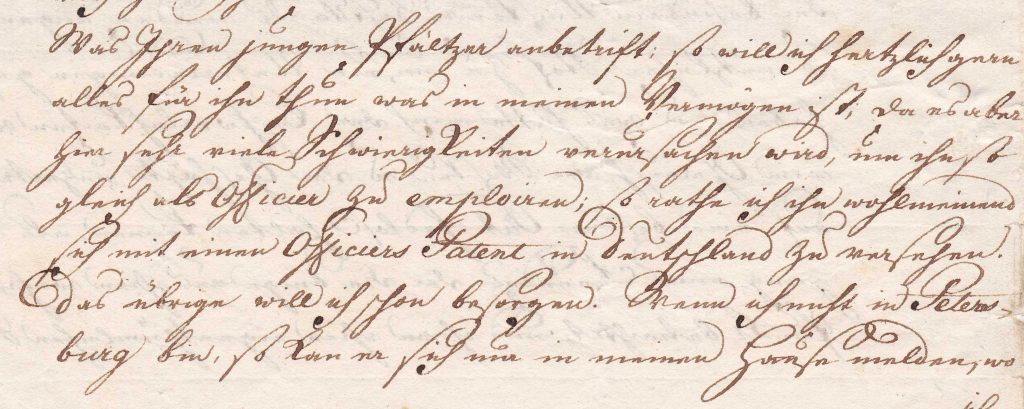 Was Ihren jungen Pfältzer anbetrift; so will ich hertzlich gern
alles für ihn thun was in meinen Vermögen ist; da es aber
hier sehr viele Schwierigkeiten verursachen wird, um ihn so
gleich als Officier zu emploiren; so rathe ich ihn wohlmeinend
sich mit einen Officiers Patent in Deutschland zu versehen.
Das übrige will ich schon besorgen. Wenn ich nicht in Peters-
burg bin, so kan er sich nur in meinen Hause melden, wo